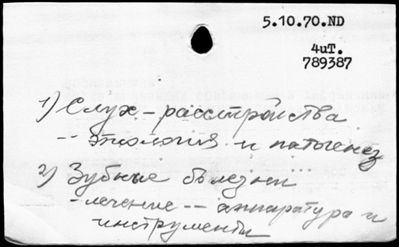 5.10.70.ND
4uT.
789387
1) Слух – расстройства
-- этиология и патогенез
2) Зубные болезни
- лечение -- аппаратура и
инструменты